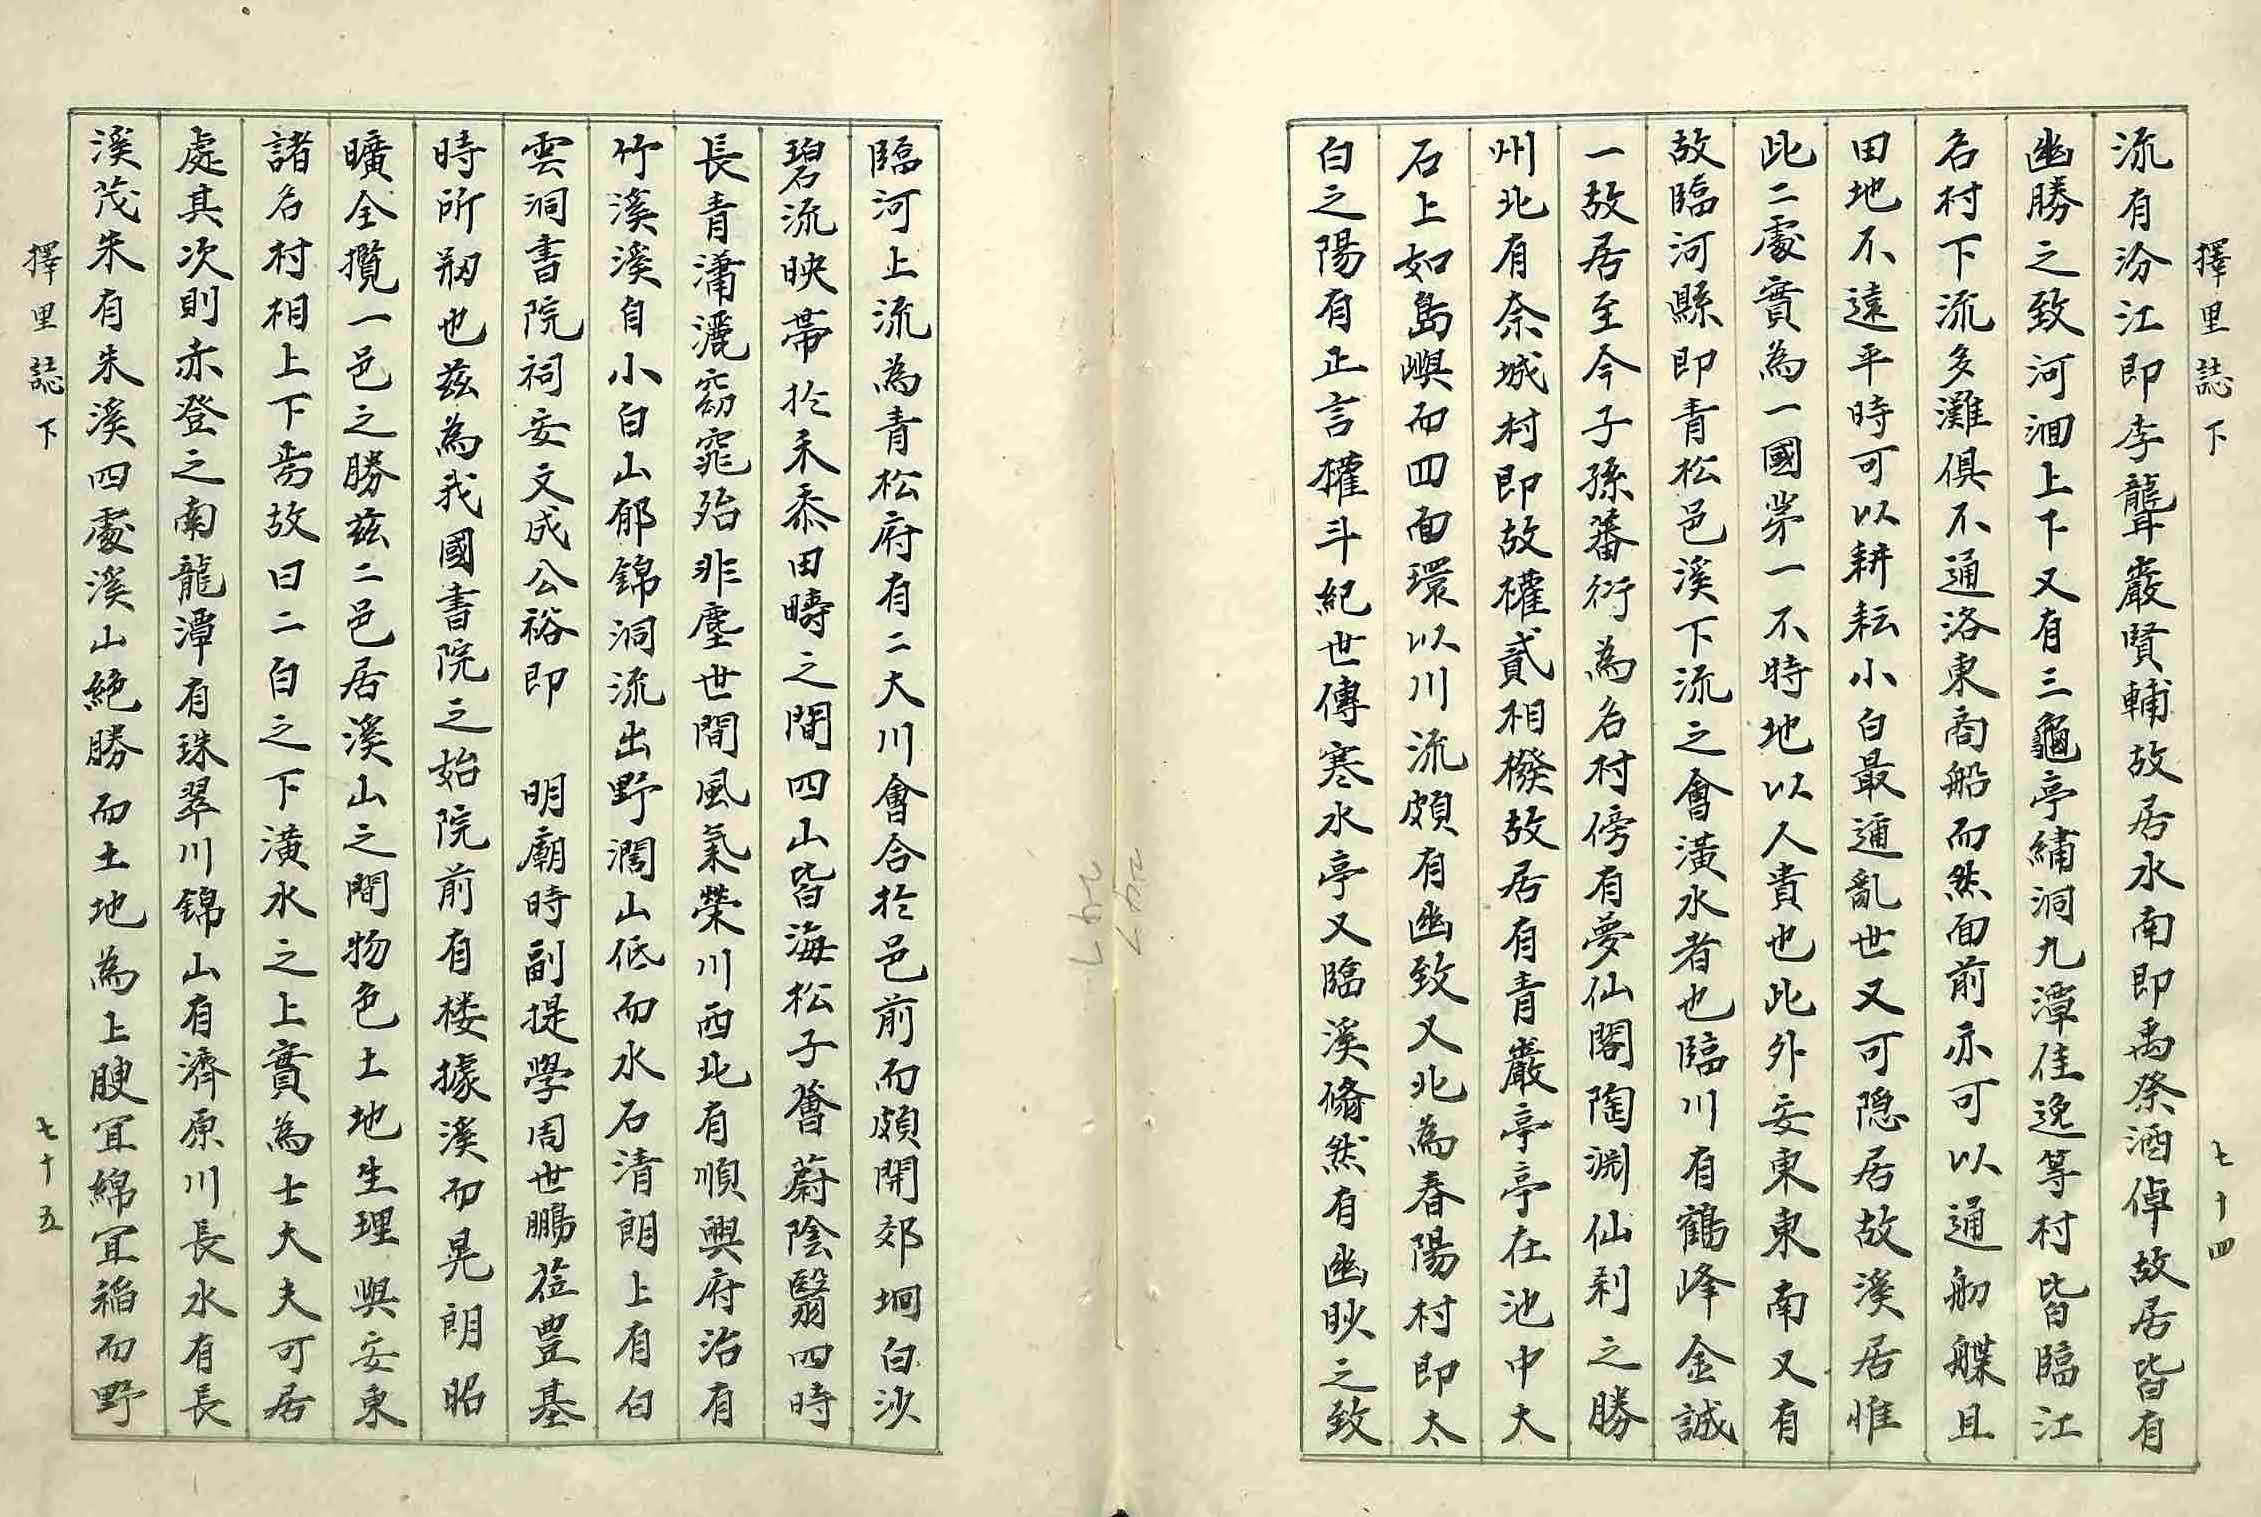 擇里誌下
七十四
流有汾江即李聾巖賢輔故居水南即禹祭酒倬故居皆有
幽勝之致河洄上下又有三龜亭繡洞九潭佳逸等村皆臨江
名村下流多灘俱不通洛東商船而然面前亦可以通舠艓且
田地不遠平時可以耕耘小白最邇亂世又可隐居故溪居惟
此二處實為一國第一不時地以人貴也此外安東東南又有
故臨河縣即青松邑溪下流之會潢水者也臨川有鶴峰金誠
一故居至今子孫蕃衍為名村傍有夢仙閣陶渊仙刹之勝
州北有奈城村即故權貳相橃故居有青巖亭亭在池中大
石上如島嶼而四面環以川流頗有幽致又北為春陽村即太
白之陽有正言權斗紀世傳寒水亭又臨溪翛然有幽眇之致
臨河上流為青松府有二大川會合於邑前而頗開郊坰白沙
碧流映帶於禾黍田疇之間四山皆海松子薈蔚陰翳四時
長青瀟灑窈窕殆非塵世間風氣榮川西北有順興府治有
竹溪溪自小白山郁錦洞流出野濶山低而水石清朗上有白
雲洞書院祠安文成公裕即　明廟時副提學周世鵬莅豊基
時所刱也兹為我國書院之始院前有楼據溪而晃朗昭
曠全攬一邑之勝兹二邑居溪山之間物色土地生理與安東
諸名村相上下焉故曰二白之下潢水之上實為士大夫可居
處其次則赤登之南龍潭有珠翠川錦山有濟原川長水有長
溪茂朱有朱溪四處溪山絶勝而土地為上腴宜綿宜稻而野
擇里誌下
七十五